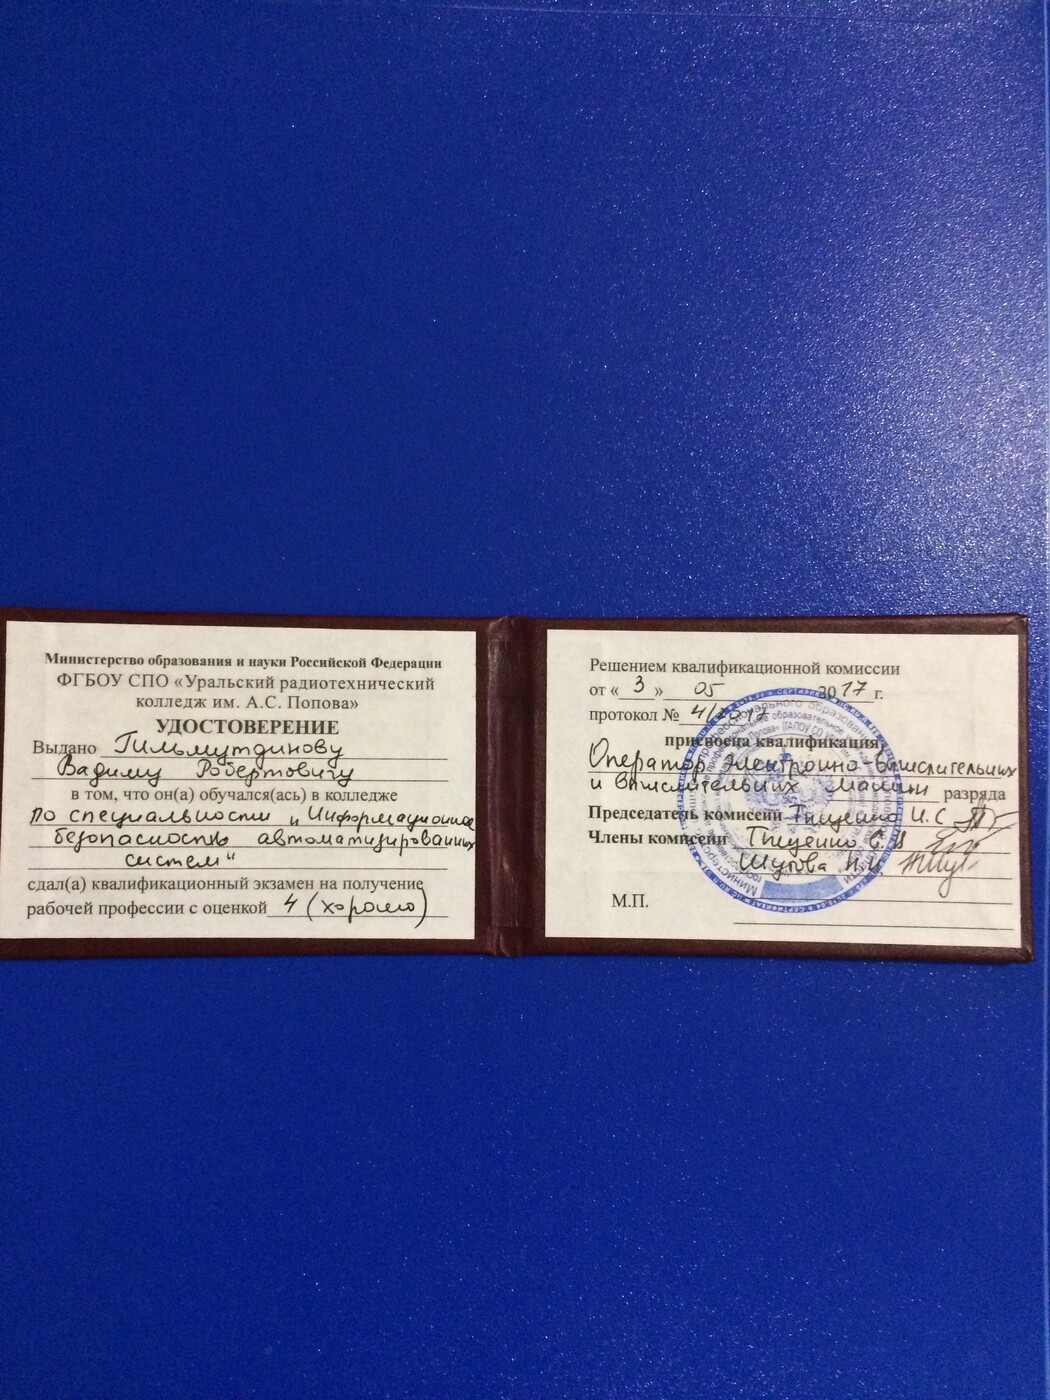 Министерство образования и науки Российской Федерации
ФГБОУ СПО «Уральский радиотехнический
колледж им. А.С. Попова»
УДОСТОВЕРЕНИЕ
Выдано Гильмутдинову
Вадиму Робертовичу
в том, что он(а) обучался(ась) в колледже
по специальности „Информационная
безопасность автоматизированных
систем“
сдал(а) квалификационный экзамен на получение
рабочей профессии с оценкой 4 (хорошо)
Решением квалификационной комиссии
от « 3 » 05 2017 г.
протокол № 4/2017
присвоена квалификация
Оператор электронно вычислительных
и вычислительных машин разряда
Председатель комиссии Тищенко И.С
Члены комиссии Тищенко С.А
Шутова Н.И.
М.П.